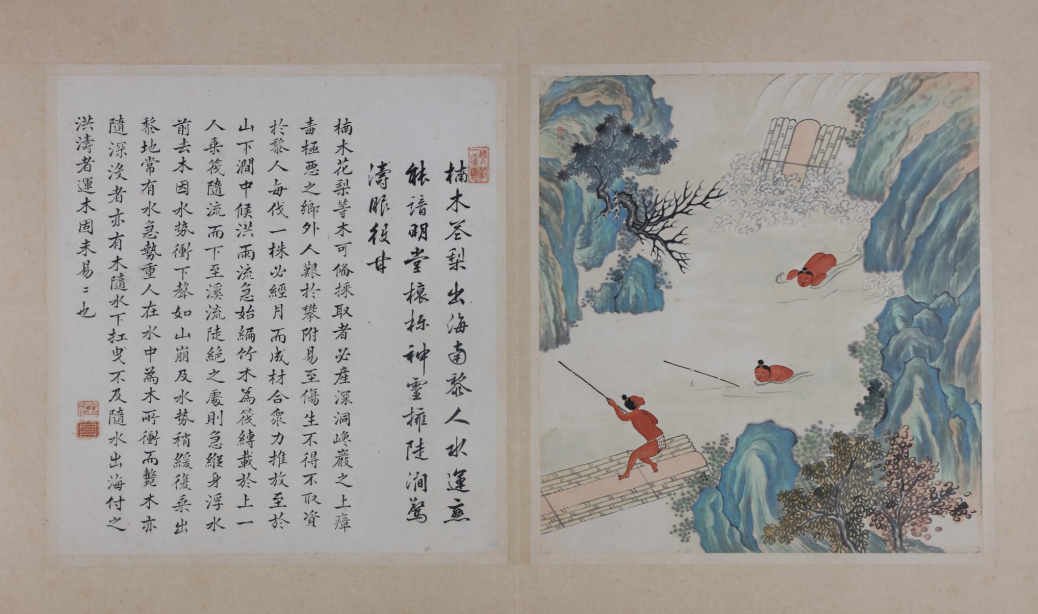 楠木花梨出海南黎人水運亦
能諳明堂榱棟神靈擁陡澗驚
濤眼役甘
楠木花梨等木可備採取者必產深洞峻巖之上瘴
毒極惡之鄉外人艱於攀附易至傷生不得不取資
於黎人每伐一株必經月而成材合衆力推放至於
山下澗中候洪雨流急始編竹木為筏縛載於上一
人乘筏隨流而下至溪流陡絕之處則急縱身浮水
前去木因水勢衝下聲如山崩及水勢稍緩復乘出
黎地常有水急勢重人在水中為木所衝而斃木亦
隨深沒者亦有木隨水下扛曳不及隨水出海付之
洪濤者運木因未易〻也